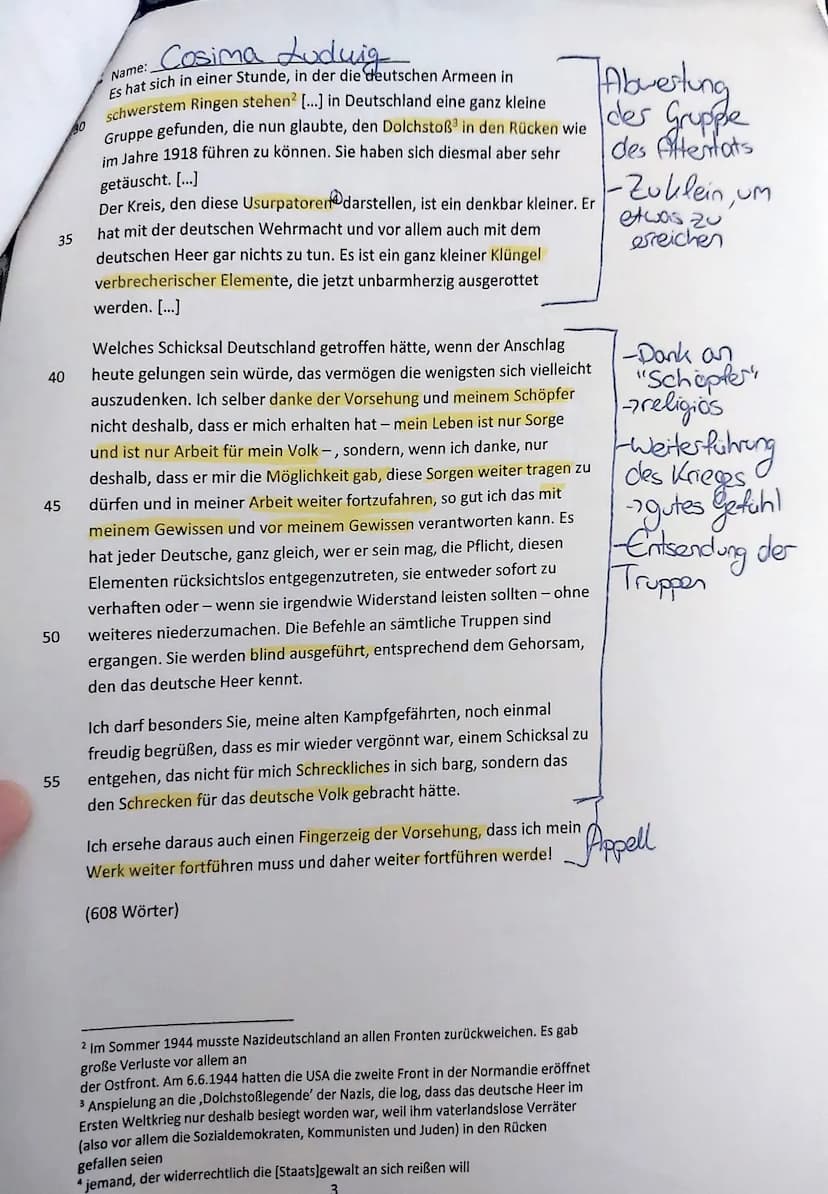 Name: Cosima Ludwig
Es hat sich in einer Stunde, in der die deutschen Armeen in
schwerstem Ringen stehen² [...] in Deutschland eine ganz kleine
30 Gruppe gefunden, die nun glaubte, den Dolchstoß³ in den Rücken wie
im Jahre 1918 führen zu können. Sie haben sich diesmal aber sehr
getäuscht. [...]
Der Kreis, den diese Usurpatoren⁴ darstellen, ist ein denkbar kleiner. Er
35 hat mit der deutschen Wehrmacht und vor allem auch mit dem
deutschen Heer gar nichts zu tun. Es ist ein ganz kleiner Klüngel
verbrecherischer Elemente, die jetzt unbarmherzig ausgerottet
werden. [...]
Abwertung
der Gruppe
des Attentats
- Zu klein, um
etwas zu
erreichen
Welches Schicksal Deutschland getroffen hätte, wenn der Anschlag
40 heute gelungen sein würde, das vermögen die wenigsten sich vielleicht
auszudenken. Ich selber danke der Vorsehung und meinem Schöpfer
nicht deshalb, dass er mich erhalten hat – mein Leben ist nur Sorge
und ist nur Arbeit für mein Volk – , sondern, wenn ich danke, nur
deshalb, dass er mir die Möglichkeit gab, diese Sorgen weiter tragen zu
45 dürfen und in meiner Arbeit weiter fortzufahren, so gut ich das mit
meinem Gewissen und vor meinem Gewissen verantworten kann. Es
hat jeder Deutsche, ganz gleich, wer er sein mag, die Pflicht, diesen
Elementen rücksichtslos entgegenzutreten, sie entweder sofort zu
verhaften oder – wenn sie irgendwie Widerstand leisten sollten – ohne
50 weiteres niederzumachen. Die Befehle an sämtliche Truppen sind
ergangen. Sie werden blind ausgeführt, entsprechend dem Gehorsam,
den das deutsche Heer kennt.
- Dank an
"Schöpfer"
-> religiös
- Weiterführung
des Krieges
-> gutes Gefühl
- Entsendung der
Truppen
Ich darf besonders Sie, meine alten Kampfgefährten, noch einmal
freudig begrüßen, dass es mir wieder vergönnt war, einem Schicksal zu
55 entgehen, das nicht für mich Schreckliches in sich barg, sondern das
den Schrecken für das deutsche Volk gebracht hätte.
Ich ersehe daraus auch einen Fingerzeig der Vorsehung, dass ich mein
Werk weiter fortführen muss und daher weiter fortführen werde!
Appell
(608 Wörter)
² Im Sommer 1944 musste Nazideutschland an allen Fronten zurückweichen. Es gab
große Verluste vor allem an
der Ostfront. Am 6.6.1944 hatten die USA die zweite Front in der Normandie eröffnet
³ Anspielung an die ‚Dolchstoßlegende' der Nazis, die log, dass das deutsche Heer im
Ersten Weltkrieg nur deshalb besiegt worden war, weil ihm vaterlandslose Verräter
(also vor allem die Sozialdemokraten, Kommunisten und Juden) in den Rücken
gefallen seien
⁴ jemand, der widerrechtlich die [Staats]gewalt an sich reißen will
3